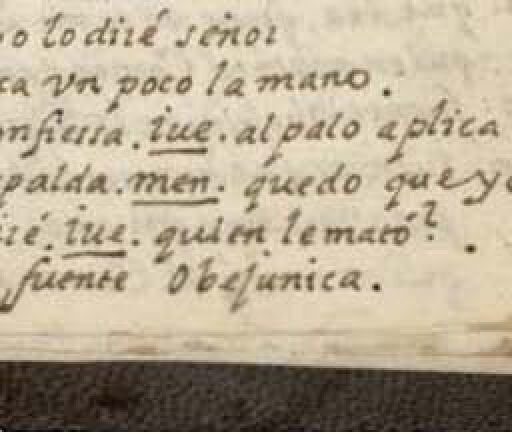 o lo diré señor
ca vn poco la mano.
nfiessa. iue. al palo aplica
palda. men. quedo que yo
iré. iue. quien le mató?.
fuente Obejunica.